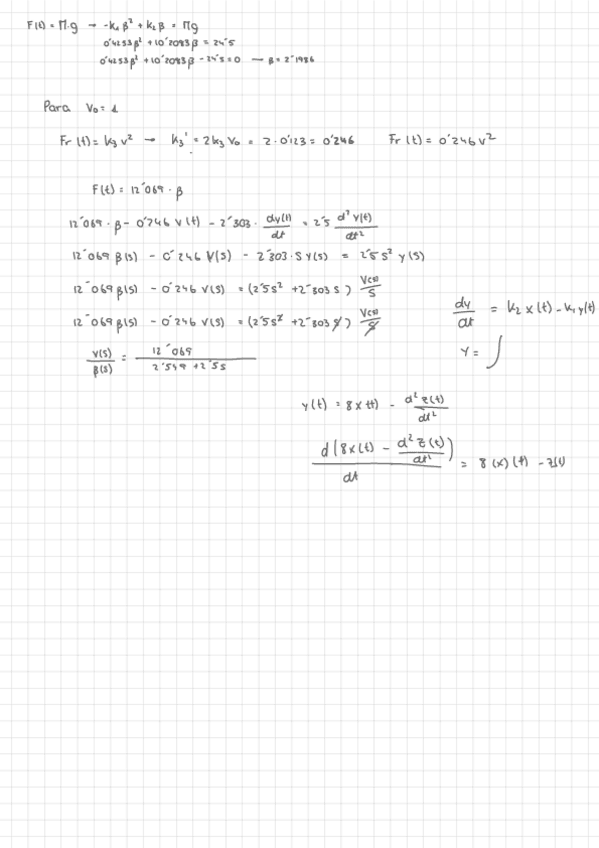 F(t) = M·g → -k₁β² + k₂β = Mg
0'4253β² + 10'2083β = 24'5
0'4253β² + 10'2083β - 24'5 = 0 → β = 2'1986
Para V₀ = 1
Fr(t) = k₃v² → k₃' = 2k₃V₀ = 2·0'123 = 0'246 Fr(t) = 0'246v²
F(t) = 12'069·β
12'069·β - 0'246 v(t) - 2'303· dy(t)/dt = 2'5 d²y(t)/dt²
12'069 β(s) - 0'246 V(s) - 2'303·S Y(s) = 2'5s² y(s)
12'069 β(s) - 0'246 V(s) = (2'5s² + 2'303 s) V(s)/s
12'069 β(s) - 0'246 V(s) = (2'5s² + 2'303 s) V(s)/s
dy/dt = k₂ x(t) - k₁ y(t)
V(s)/β(s) = 12'069/2'549 + 2'5s
Y = ∫
y(t) = 8x(t) - d²z(t)/dt²
d(8x(t) - d²z(t)/dt²)/dt = 8(x)(t) - z(t)